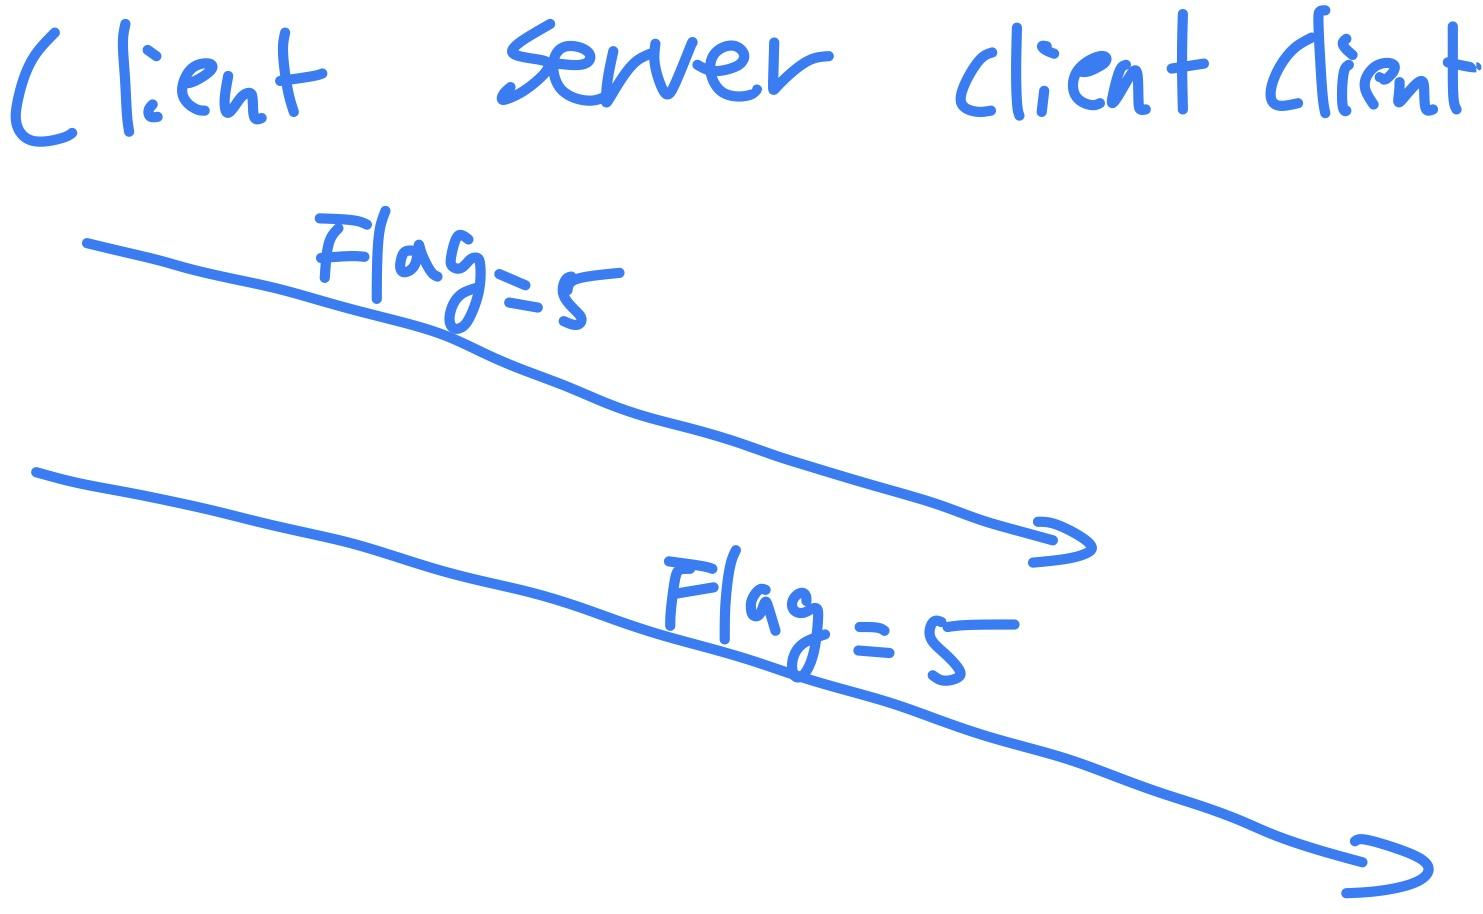 Client server client client
Flag=5
Flag=5